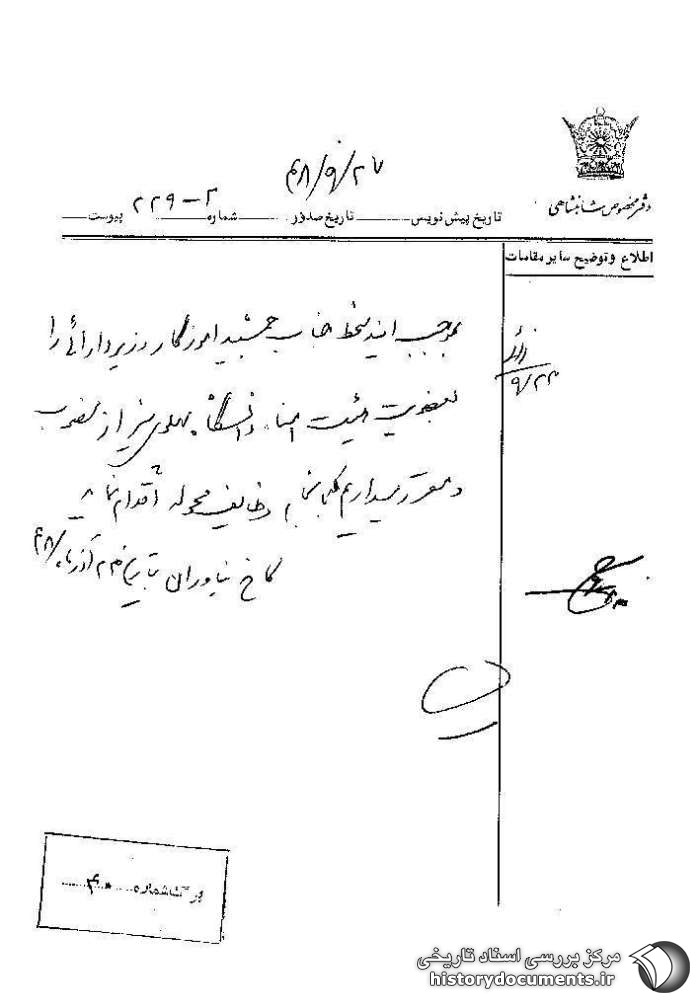 دفتر مخصوص شاهنشاهی
۴۸/۹/۲۷
تاریخ پیش نویس تاریخ صدور شماره ۲-۲۲۹ پیوست
اطلاع و توضیح سایر مقامات
بموجب این دستخط جناب جمشید آموزگار وزیر دارائی را
بعضویت هیئت امناء دانشگاه پهلوی شیراز منصوب
و مقرر میداریم که بانجام وظایف محوله اقدام نماید
کاخ نیاوران بتاریخ ۲۳ آذرماه ۴۸
۹/۲۳
برگ شماره ۴۰
مرکز بررسی اسناد تاریخی
historydocuments.ir